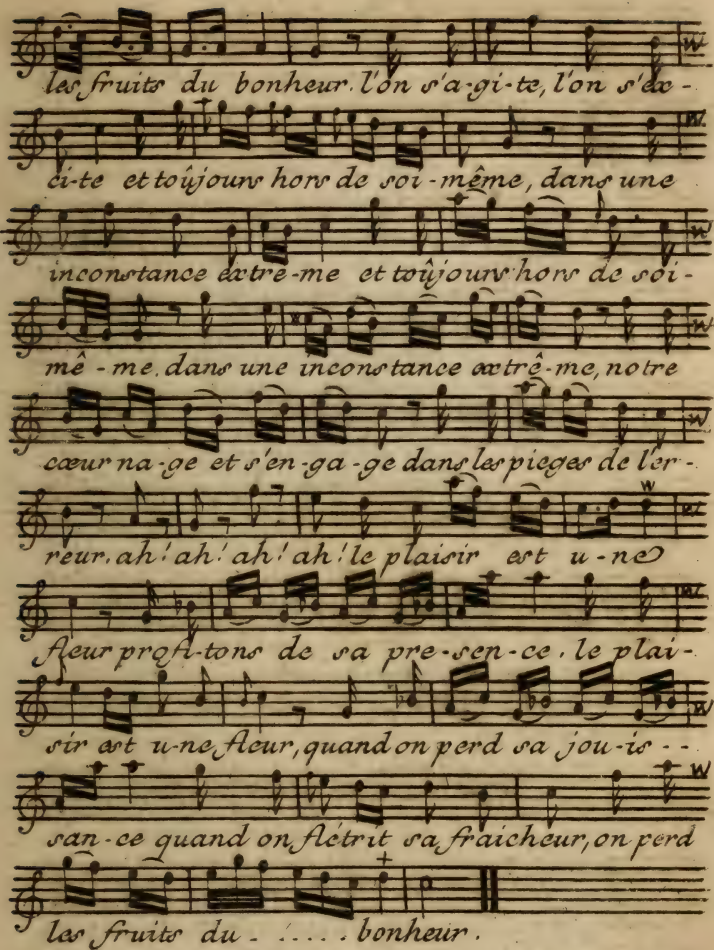 les fruits du bonheur. l'on s'a-gi-te, l'on s'ex-
ci-te et toûjours hors de soi-même, dans une
inconstance extrê-me et toûjours hors de soi-
mê-me. dans une inconstance extrê-me, notre
cœur na-ge et s'en-ga-ge dans les pieges de l'er-
reur. ah! ah! ah! ah! le plaisir est u-ne
fleur profi-tons de sa pre-sen-ce. le plai-
sir est u-ne fleur, quand on perd sa jou-is--
san-ce quand on flétrit sa fraicheur, on perd
les fruits du - ..... bonheur.